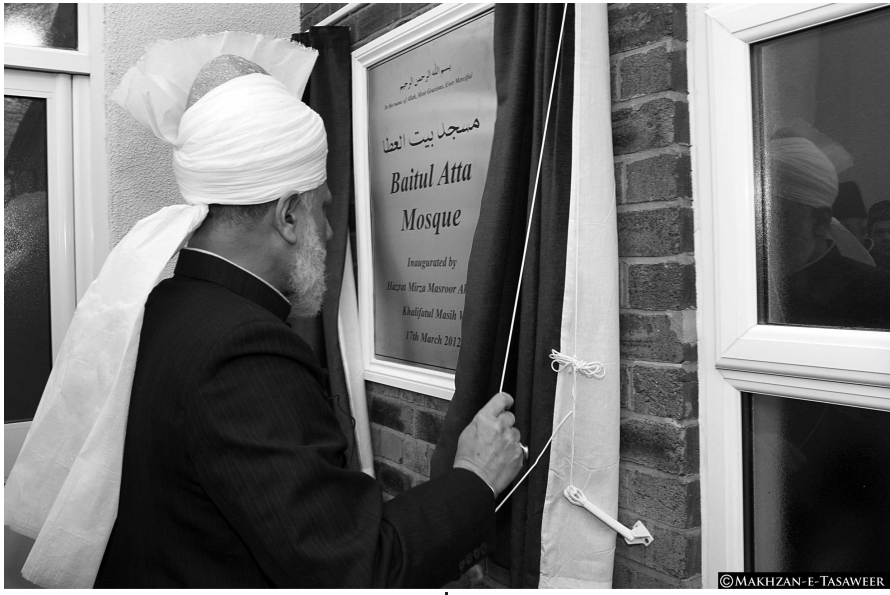 بسم الله الرحمن الرحيم
In the name of Allah, Most Gracious, Ever Merciful
مسجد بيت العطا
Baitul Atta
Mosque
Inaugurated by
Hazrat Mirza Masroor
Khalifatul Masih
17th March 2012
©MAKHZAN-E-TASAWEER